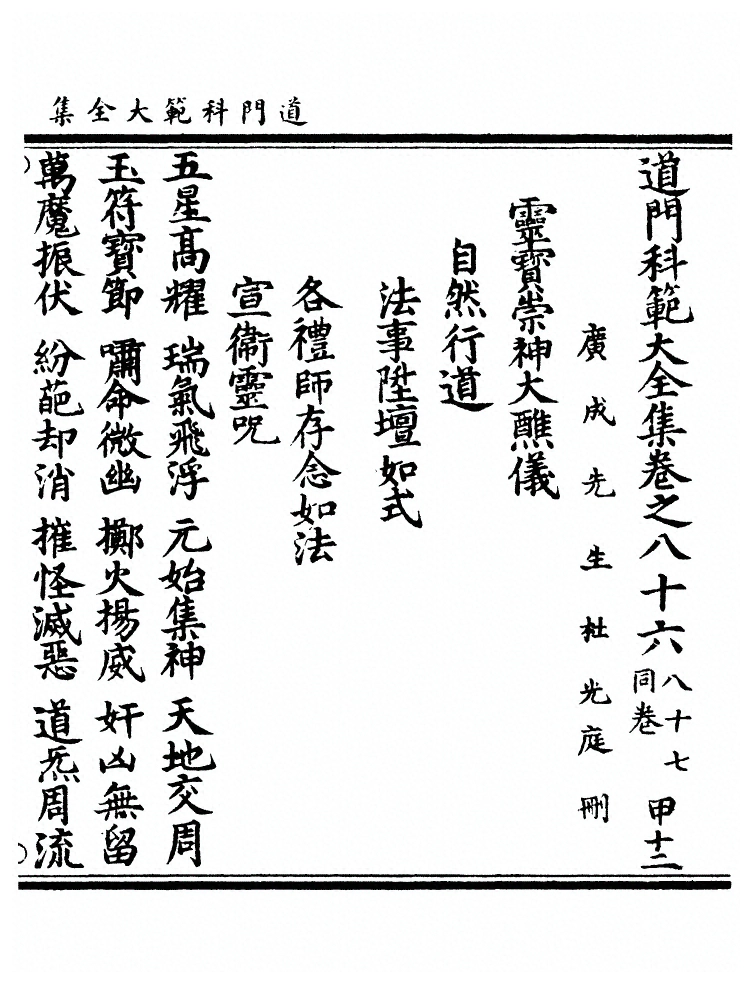 道門科範大全集
道門科範大全集卷之八十六 八十七同卷 甲十二
廣成先生杜光庭刪
靈寶崇神大醮儀
自然行道
法事陞壇如式
各禮師存念如法
宣衞靈呪
五星高耀 瑞氣飛浮 元始集神 天地交周
玉符寶節 嘯命微幽 擲火揚威 奸凶無留
萬魔振伏 紛葩却消 摧怪滅惡 道炁周流